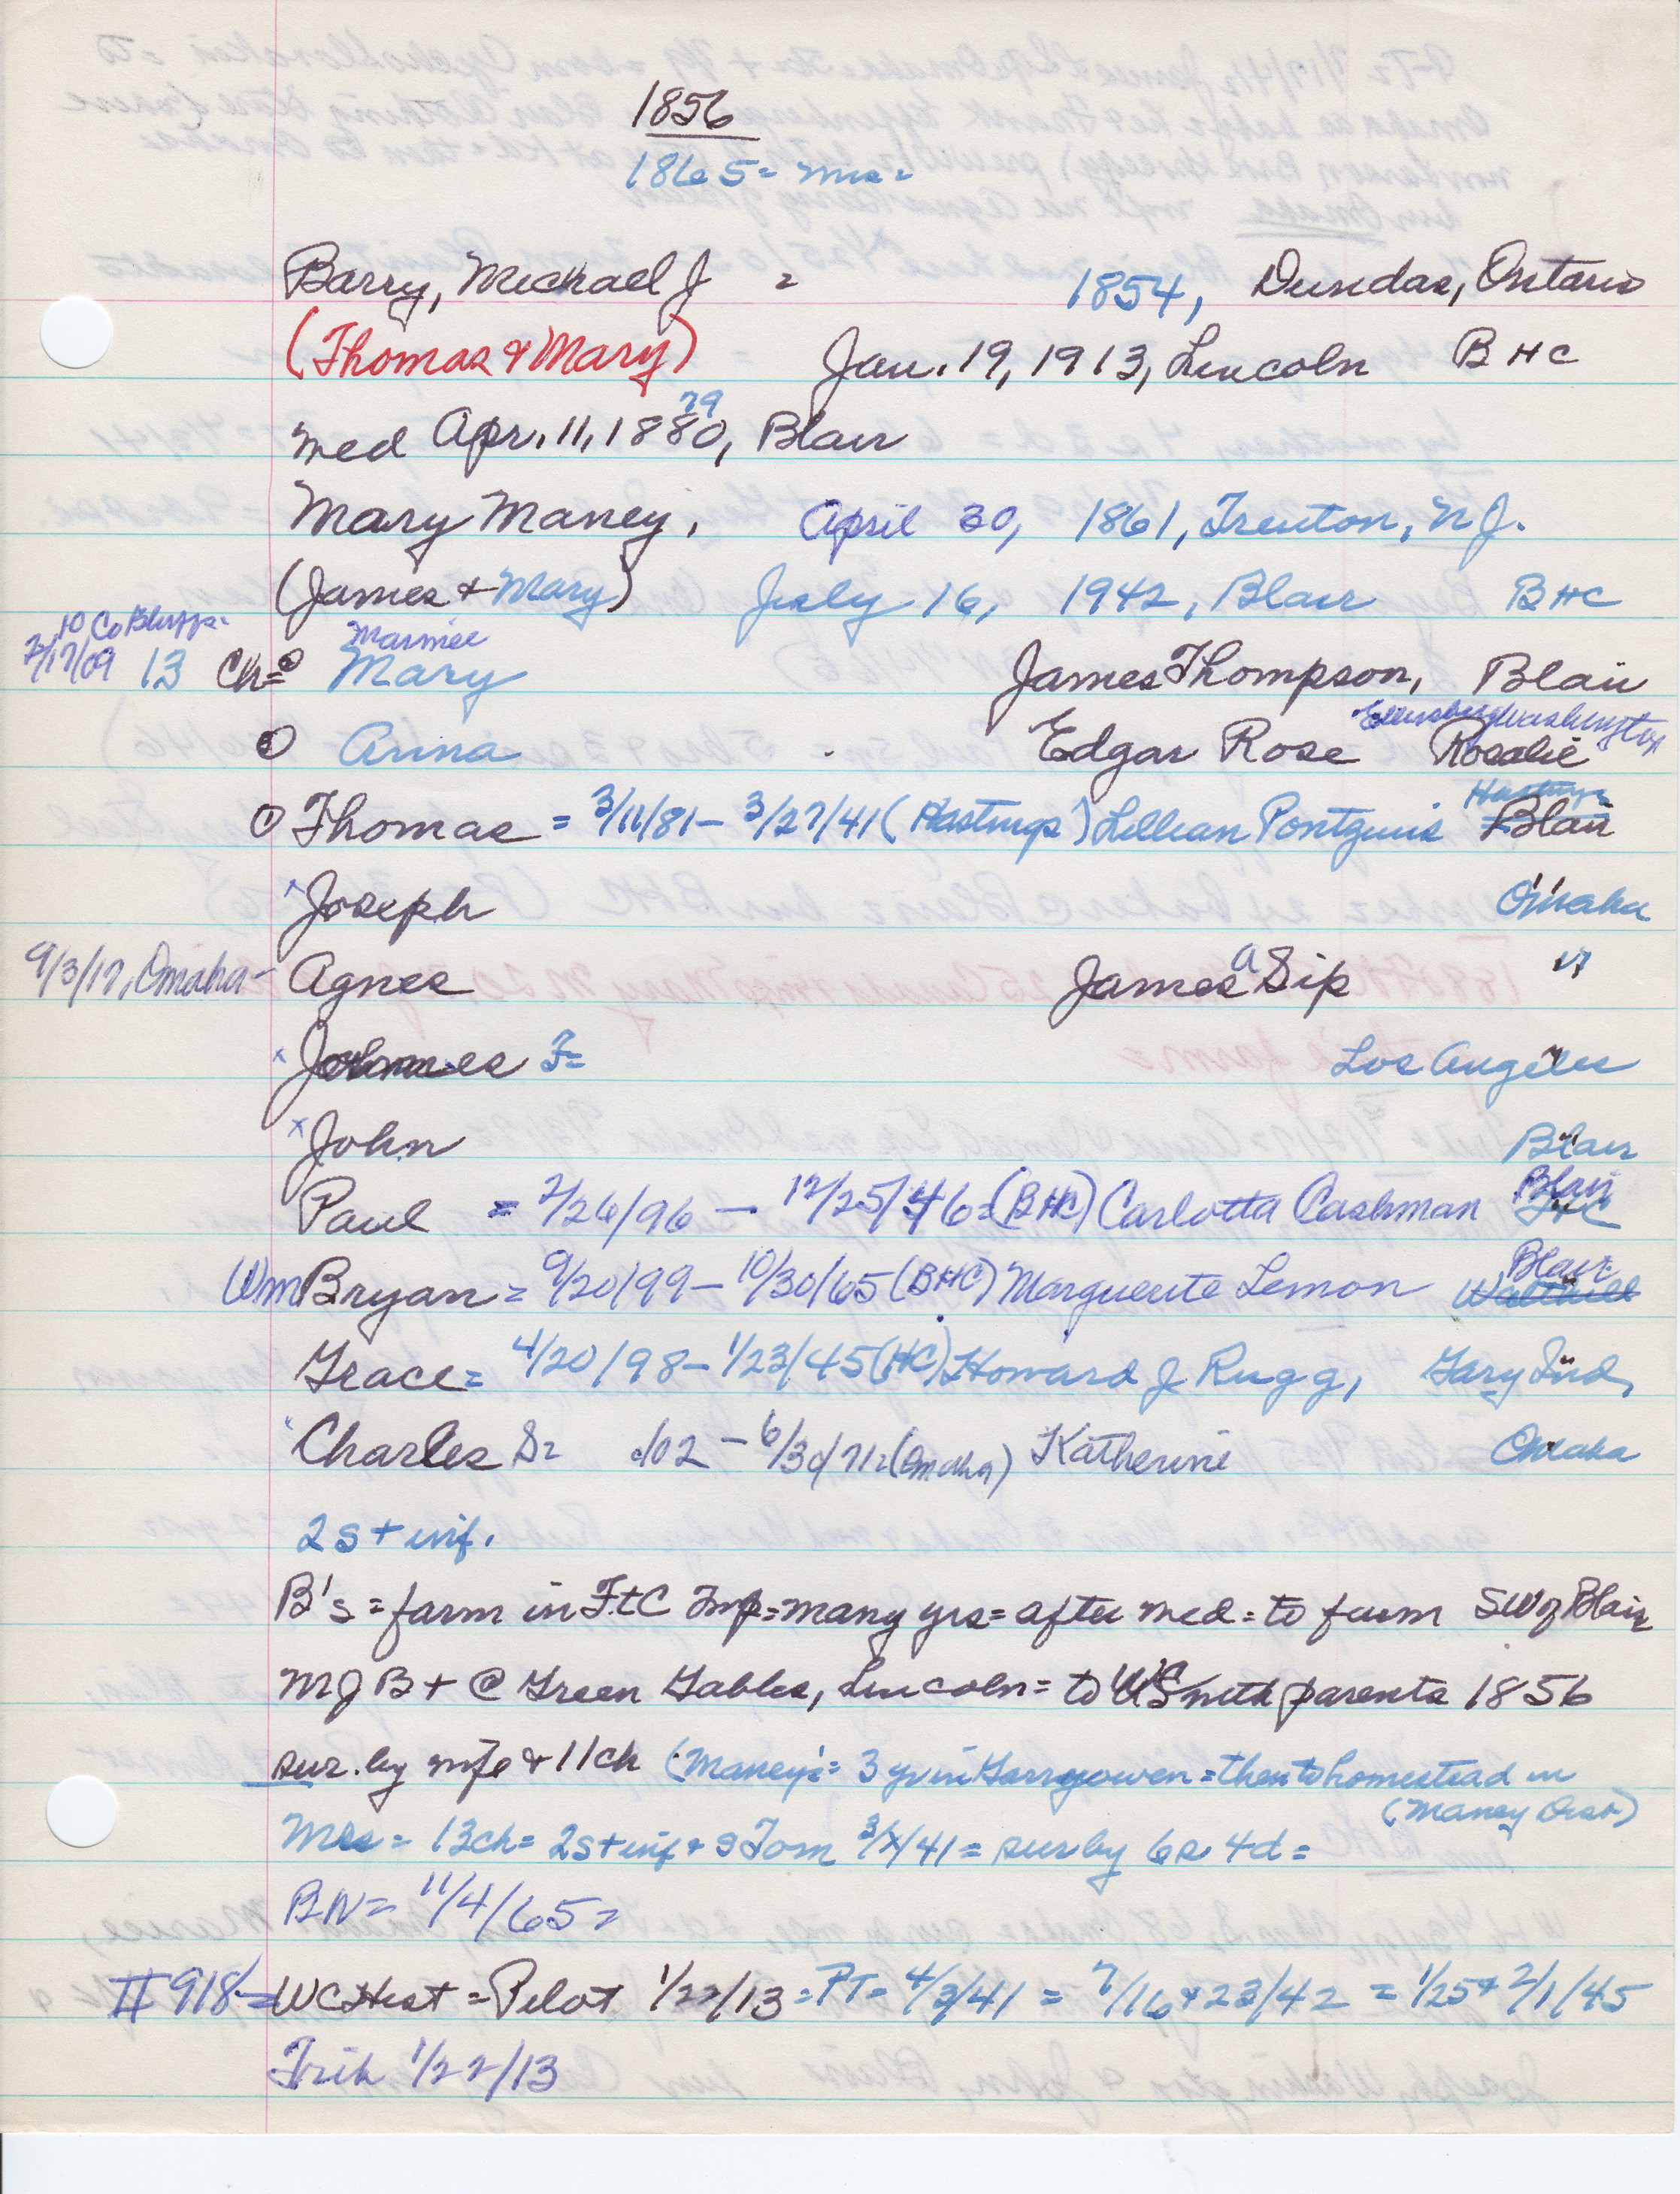 1856
1865 = Mrs =
Barry, Michael J = 1854, Dundas, Ontario
(Thomas & Mary) Jan. 19, 1913, Lincoln BHC
med Apr. 11, 1880, Blair
79
Mary Maney, April 30, 1861, Trenton, N J.
(James + Mary) July 16, 1942, Blair BHC
10 Co Bluffs
Mamiee
2/17/09 13 Ch = Mary James Thompson, Blair
Ellensburg Washington
Anna Edgar Rose Rosalie
Hastings
Thomas = 3/11/81 - 3/27/41 (Hastings) Lillian Blair
x Joseph Omaha
9/3/17, Omaha - Agnes James A Sip "
x James F = Los Angeles
x John Blair
Blair
Paul = 2/26/96 - 12/25/46 = (BHC) Carlotta Cashman
Blair
Wm Bryan = 9/20/99 - 10/30/65 (BHC) Marguerite Lemon Walthill
Grace = 4/20/98 - 1/23/45 (HC) Howard J Rugg, Gary Ind,
Charles S = 02 - 6/30/71 = (Omaha) Katherine Omaha
2 s + inf.
B's = farm in FtC Tmp = many yrs = after med = to farm SW of Blair
M J B + @ Green Gables, Lincoln = to W parents 1856
sur. by wife & 11 ch (Maney's = 3 yr in Garryowen = then to homestead in
(Maney Dist)
Mrs = 13 ch = 2 s + inf & s Tom 3/ /41 = sur by 6 s 4 d =
BN = 11/4/65 =
II 918 = WCHist = Pilot 1/22/13 = PT = 4/3/41 = 7/16 & 23/42 = 1/25 & 2/1/45
Trib 1/22/13